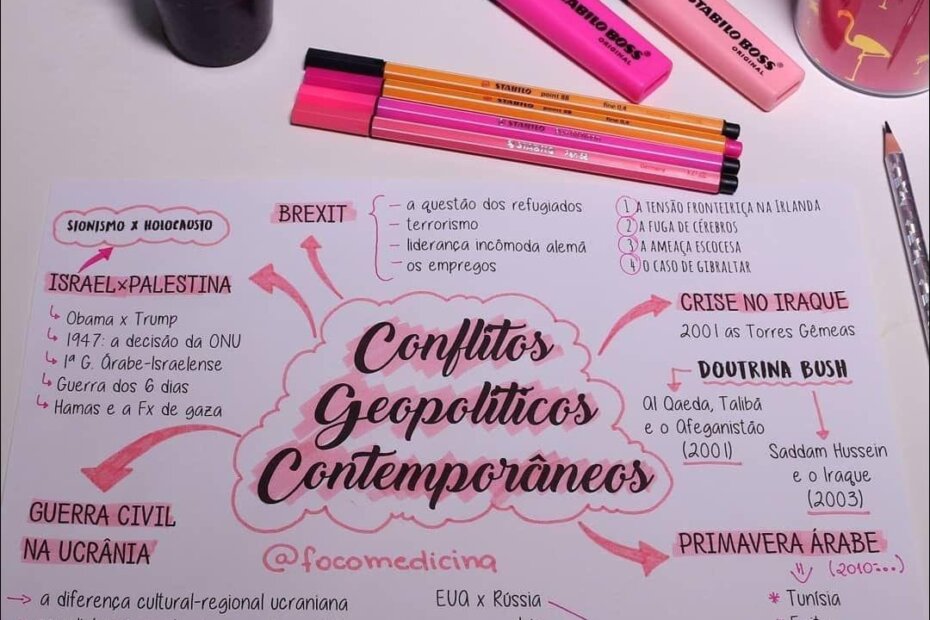 STABILO BOSS
ORIGINAL
STABILO BOSS
ORIGINAL
STABILO point 88 fine 0,4
STABILO point 88 fine 0,4
STABILO
STABILO
SIONISMO X HOLOCAUSTO
ISRAEL×PALESTINA
Obama x Trump
1947: a decisão da ONU
1ª G. Árabe-Israelense
Guerra dos 6 dias
Hamas e a Fx de gaza
BREXIT
- a questão dos refugiados
- terrorismo
- liderança incômoda alemã
- os empregos
1 A TENSÃO FRONTEIRIÇA NA IRLANDA
2 A FUGA DE CÉREBROS
3 A AMEAÇA ESCOCESA
4 O CASO DE GIBRALTAR
Conflitos
Geopolíticos
Contemporâneos
@focomedicina
CRISE NO IRAQUE
2001 as Torres Gêmeas
DOUTRINA BUSH
Al Qaeda, Talibã
e o Afeganistão
(2001)
Saddam Hussein
e o Iraque
(2003)
GUERRA CIVIL
NA UCRÂNIA
→ a diferença cultural-regional ucraniana
EUA x Rússia
PRIMAVERA ÁRABE
(2010-...)
* Tunísia